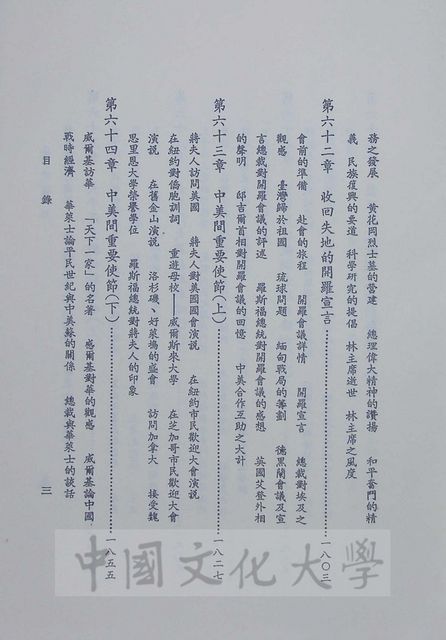 務之發展　黃花岡烈士墓的營建　總理偉大精神的讚揚　和平奮鬥的精
義　民族復興的要道　科學研究的提倡　林主席逝世　林主席之風度
第六十二章　收回失地的開羅宣言………………一八〇三
會前的準備　赴會的旅程　開羅會議詳情　開羅宣言　總裁對埃及之
觀感　臺灣歸於祖國　琉球問題　緬甸戰局的籌劃　德黑蘭會議及宣
言總裁對開羅會議的評述　羅斯福總統對開羅會議的感想　英國艾登外相
的聲明　邱吉爾首相對開羅會議的回憶　中美合作互助之大計
第六十三章　中美間重要使節(上)………………一八二七
蔣夫人訪問美國　蔣夫人對美國國會演說　在紐約市民歡迎大會演說
在紐約對僑胞訓詞　重遊母校——威爾斯來大學　在芝加哥市民歡迎大會
演說　在舊金山演說　洛杉磯、好萊塢的盛會　訪問加拿大　接受魏
思里恩大學榮譽學位　羅斯福總統對蔣夫人的印象
第六十四章　中美間重要使節(下)………………一八五五
威爾基訪華　「天下一家」的名著　威爾基對華的觀感　威爾基論中國
戰時經濟　華萊士論平民世紀與中美蘇的關係　總裁與華萊士的談話
目錄　三
中國文化大學